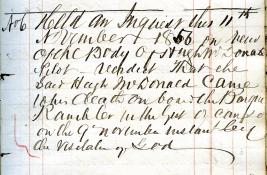 No 6 Held an Inquest this 11th
November 1856 on view
of the Body of Hugh McDonald
Pilot - verdict That the
said Hugh McDonald Came
to his Death on board the Barque
Rambler in the Gut of Canso
on the 9th November Instant by
the Visitation of God